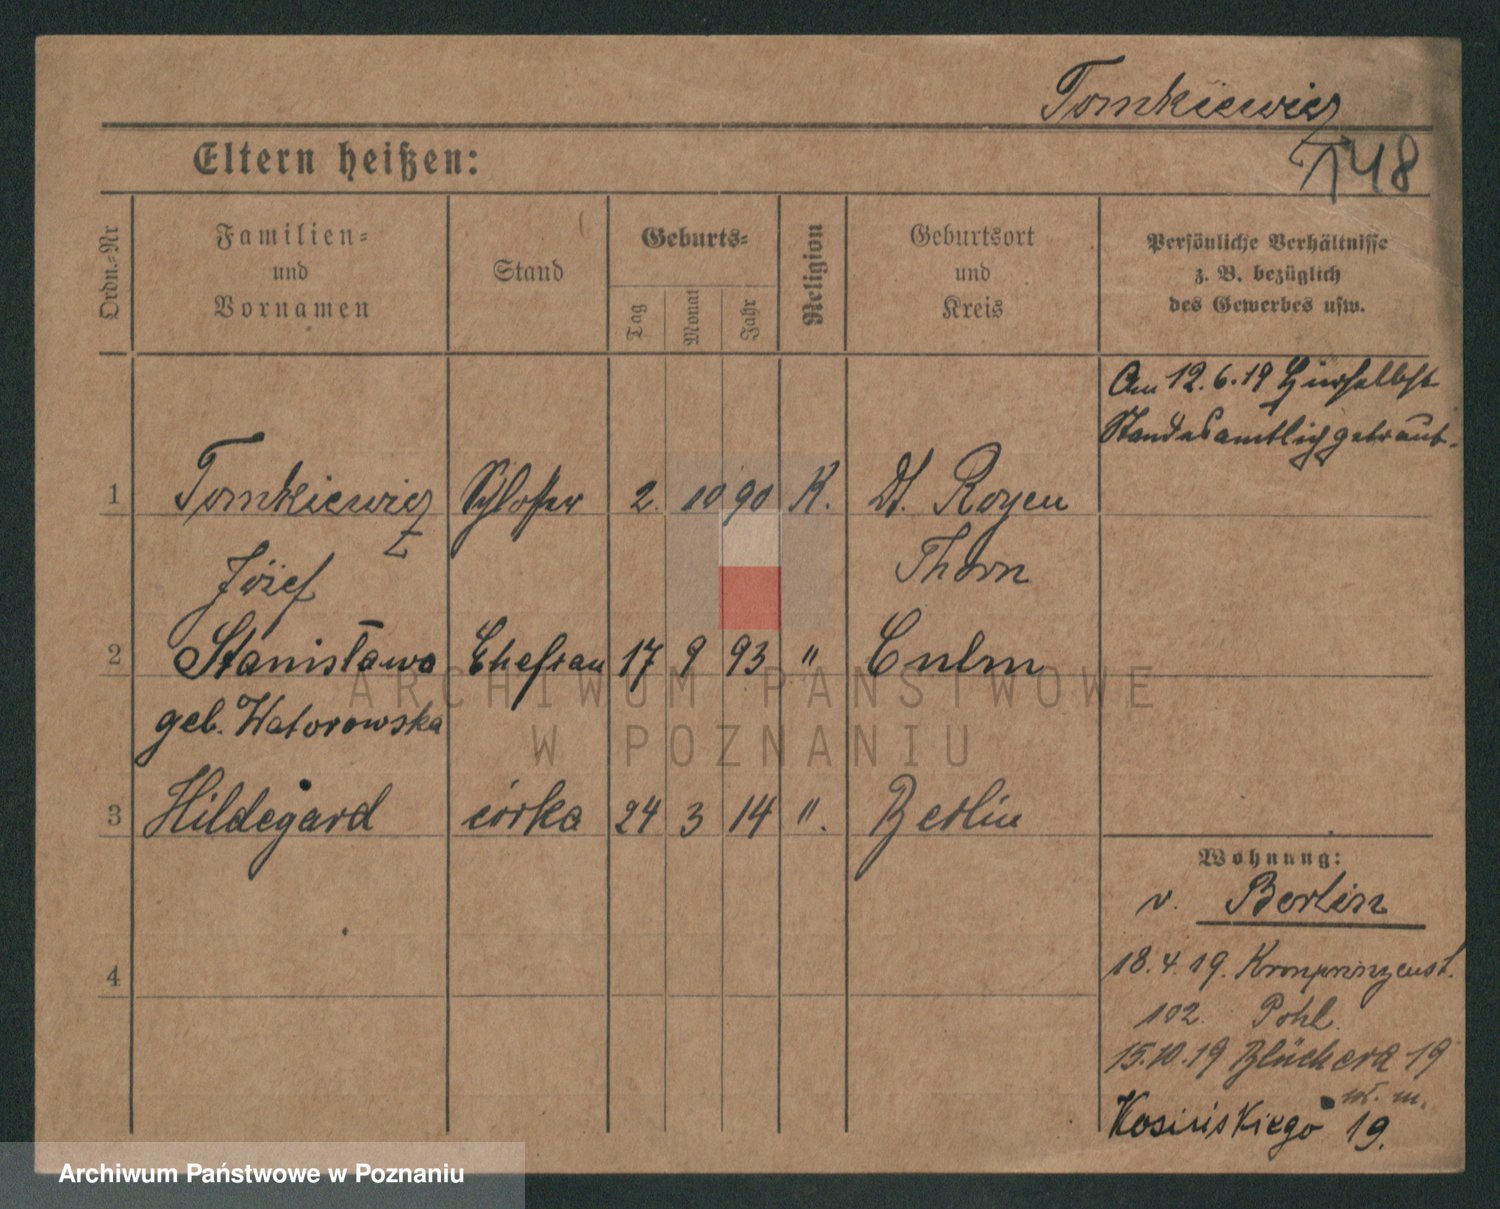 Tomkiewicz
148
Eltern heißen:
Ordn.-Nr
Familien-
und
Vornamen
Stand
Geburts-
Tag
Monat
Jahr
Religion
Geburtsort
und
Kreis
Persönliche Verhältnisse
z. B. bezüglich
des Gewerbes usw.
Am 12.6.19 hierselbst
Standesamtlich getraut.
1 Tomkiewicz Schlosser 2. 10 90 K. Dt. Rogen
Józef Thorn
2 Stanisława Ehefrau 17 9 93 " Culm
geb. Watorowska
3 Hildegard córka 24 3 14 ". Berlin
4
Wohnung:
v. Berlin
18.4.19. Kronprinzenst.
102. Pohl.
15.10.19 Blücherd 19
w. m.
Kosińskiego 19.
ARCHIWUM PAŃSTWOWE
W POZNANIU
Archiwum Państwowe w Poznaniu